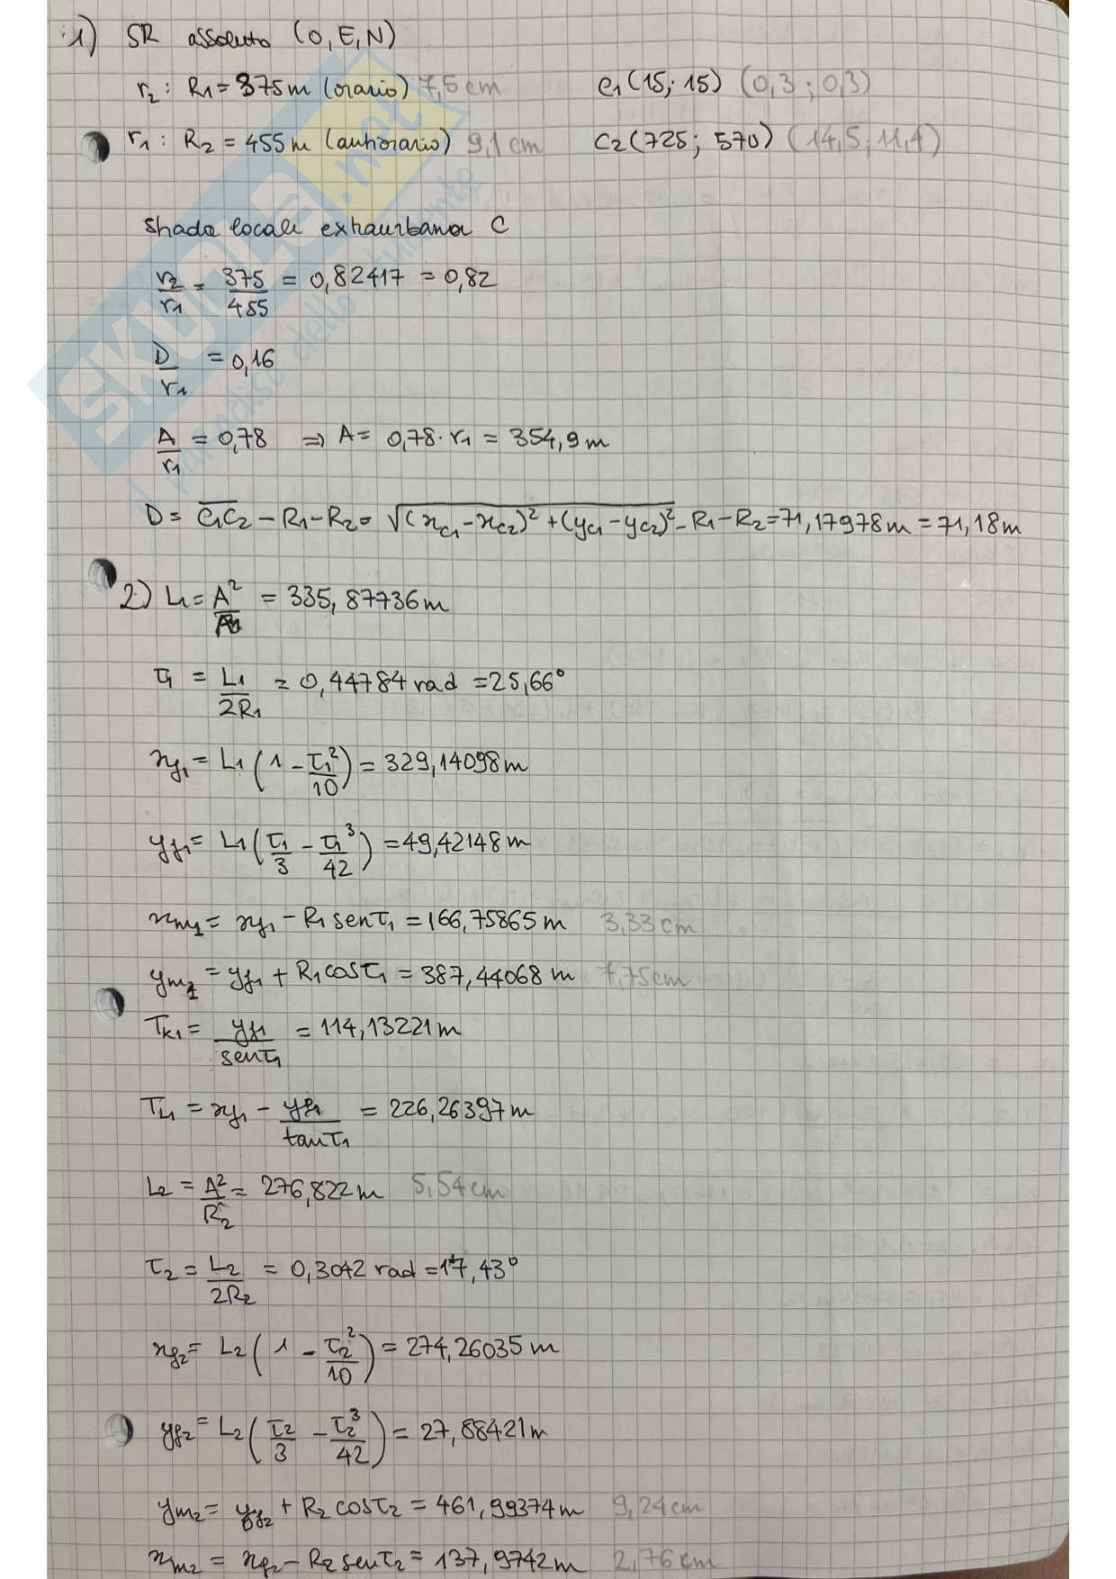 1) SR assoluto (O, E, N)
r₂: R₁ = 375m (orario) 7,5 cm C₁(15; 15) (0,3 ; 0,3)
r₁: R₂ = 455m (antiorario) 9,1 cm C₂(725; 570) (14,5; 11,4)
Strada locale extraurbana C
r₂/r₁ = 375/455 = 0,82417 = 0,82
D/r₁ = 0,16
A/r₁ = 0,78 ⇒ A = 0,78 · r₁ = 354,9 m
D = C₁C₂ − R₁ − R₂ = √((x_C₁ − x_C₂)² + (y_C₁ − y_C₂)²) − R₁ − R₂ = 71,17978m = 71,18m
2) L₁ = A²/R₁ = 335,87736m
τ₁ = L₁/2R₁ = 0,44784 rad = 25,66°
x_f₁ = L₁(1 − τ₁²/10) = 329,14098m
y_f₁ = L₁(τ₁/3 − τ₁³/42) = 49,42148m
x_m₁ = x_f₁ − R₁ senτ₁ = 166,75865m 3,33 cm
y_m₁ = y_f₁ + R₁ cosτ₁ = 387,44068 m 7,75cm
T_K₁ = y_f₁/senτ₁ = 114,13221m
T_L₁ = x_f₁ − y_f₁/tanτ₁ = 226,26397m
L₂ = A²/R₂ = 276,822m 5,54cm
τ₂ = L₂/2R₂ = 0,3042 rad = 17,43°
x_f₂ = L₂(1 − τ₂²/10) = 274,26035m
y_f₂ = L₂(τ₂/3 − τ₂³/42) = 27,88421m
y_m₂ = y_f₂ + R₂ cosτ₂ = 461,99374m 9,24cm
x_m₂ = x_f₂ − R₂ senτ₂ = 137,9742m 2,76cm
SKUOLA.net